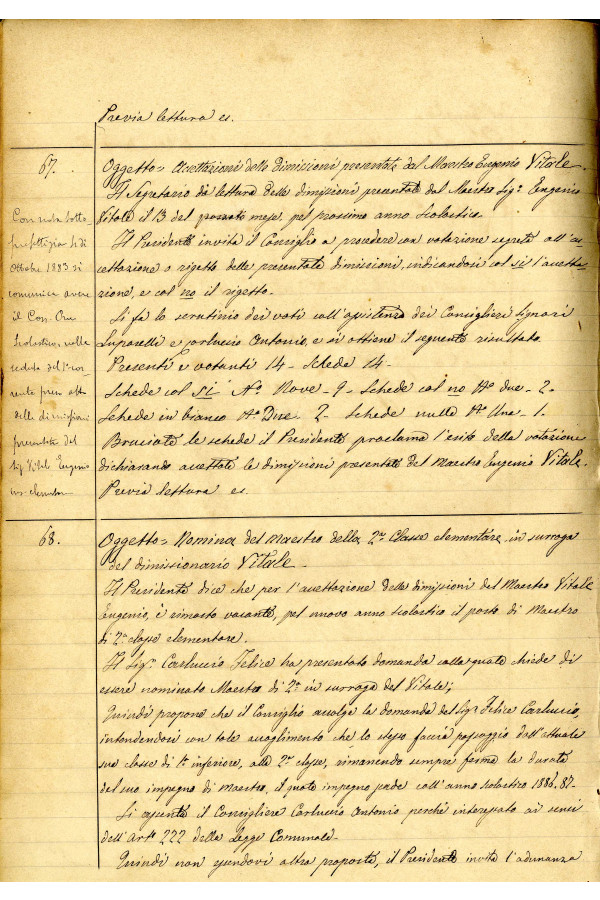 Previa lettura es.
67.
Oggetto= Accettazioni delle dimissioni presentate dal Maestro Eugenio Vitale.
Il Segretario dà lettura delle dimissioni presentate dal Maestro Sigr. Eugenio
Vitale il 13 del passato mese pel prossimo anno scolastico.
Il Presidente invita il Consiglio a procedere con votazione segreta all'ac-
cettazione o rigetto delle presentate dimissioni, indicandosi col sì l'accetta-
zione, e col no il rigetto.
Si fà lo scrutinio dei voti coll'assistenza dei Consiglieri Signori
Luparelli e Carluccio Antonio, e si ottiene il seguente risultato.
Presenti e votanti 14 - Schede 14 -
Schede col sì No. Nove - 9 - Schede col no No due - 2 -
Schede in bianco No Due 2 - Schede nulle No Una - 1 -
Bruciate le schede il Presidente proclama l'esito della votazione
dichiarando accettate le dimissioni presentate del Maestro Eugenio Vitale.
Previa lettura es.
Con nota Sotto
prefettizia
Ottobre 1883 si
comunica avere
il Con.
Scolastico, nella
seduta del
rente preso atto
delle dimissioni
presentate dal
Sig. Vitale Eugenio
68.
Oggetto= Nomina del Maestro della 2a Classe elementare, in surroga
del dimissionario Vitale -
Il Presidente dice che per l'accettazione delle dimissioni del Maestro Vitale
Eugenio, è rimasto vacante, pel nuovo anno scolastico il posto di Maestro
di 2a classe elementare.
Il Sigr. Carluccio Felice ha presentato domanda colla quale chiede di
essere nominato Maestro di 2a in surroga del Vitale;
Quindi propone che il Consiglio accolga la domanda del Sigr Felice Carluccio,
intendendosi con tale accoglimento che lo stesso faccia passaggio dall'attuale
sua classe di 1a inferiore, alla 2a classe, rimanendo sempre ferma la durata
del suo impegno di Maestro, il quale impegno cade coll'anno scolastico 1886.87-
Si assenta il Consigliere Carluccio Antonio perché interessato ai sensi
dell'Arto 222 della Legge Comunale-
Quindi non essendovi altre proposte, il Presidente invita l'adunanza